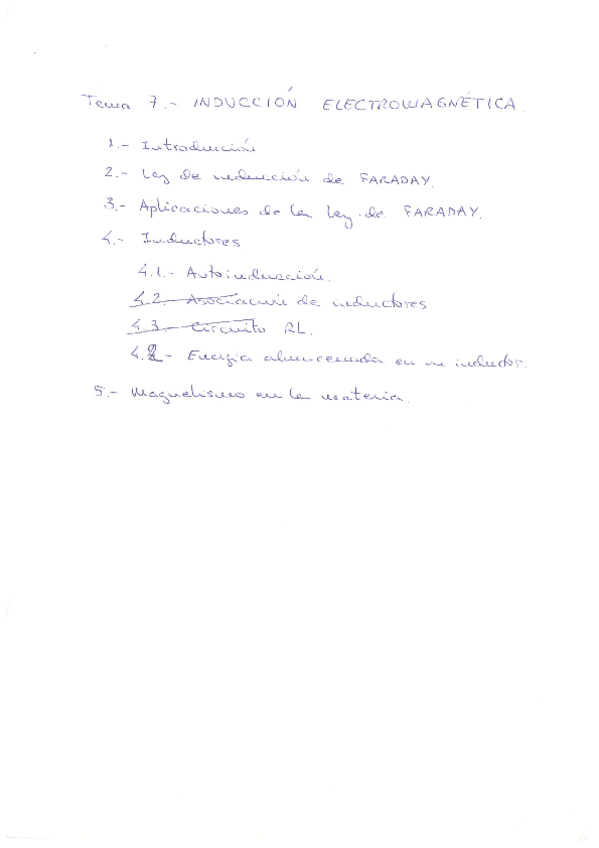 Tema 7.- INDUCCIÓN ELECTROMAGNÉTICA.
1.- Introducción
2.- Ley de inducción de FARADAY.
3.- Aplicaciones de la Ley de FARADAY.
4.- Inductores
4.1.- Autoinducción.
4.2.- Asociación de inductores
4.3.- Circuito RL.
4.2.- Energía almacenada en un inductor.
5.- Magnetismo en la materia.